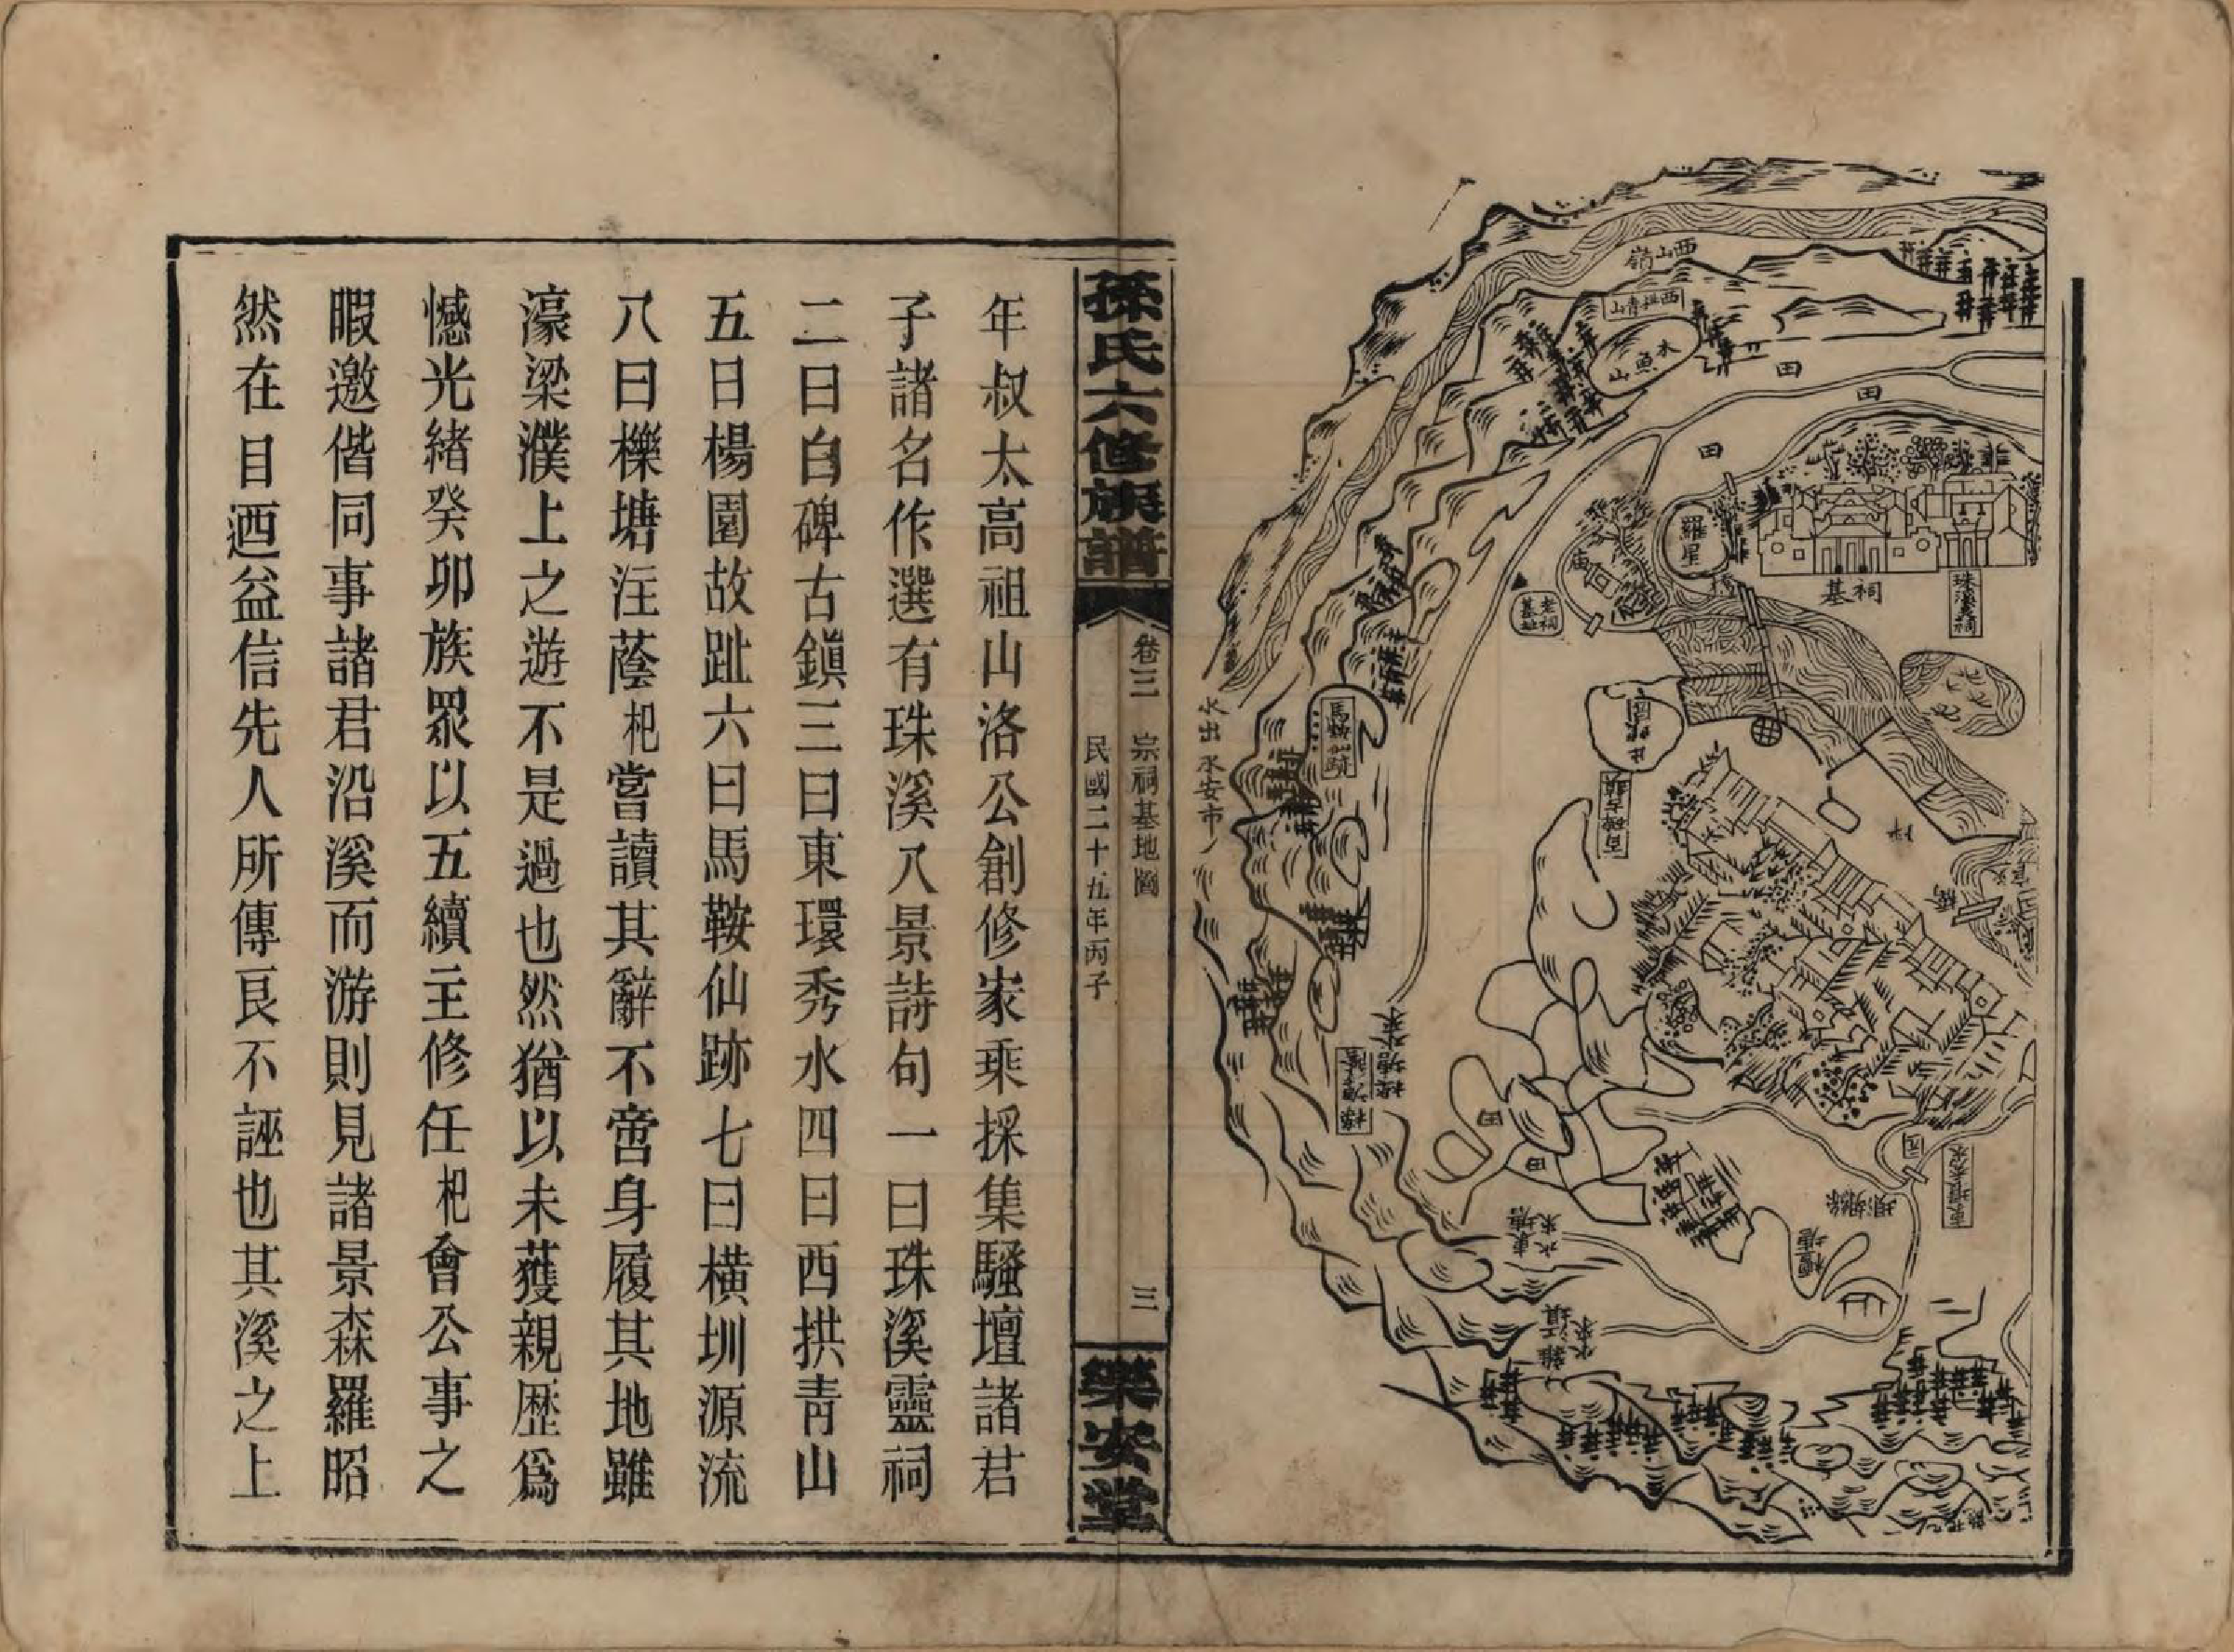 西山嶺
西拱青山
木魚山
田
田
田
羅星
庙
老祠基址
橋
祠基
珠溪靈祠
馬鞍仙跡
水出永安市
白碑古鎮
橋
田
田
孫氏六修族譜
卷三 宗祠基地圖
民國二十五年丙子
三
樂安堂
年叔太高祖山洛公創修家乘採集騷壇諸君
子諸名作選有珠溪八景詩句一曰珠溪靈祠
二曰白碑古鎮三曰東環秀水四曰西拱青山
五曰楊園故趾六曰馬鞍仙跡七曰橫圳源流
八曰櫟塘注蔭杞嘗讀其辭不啻身履其地雖
濠梁濮上之遊不是過也然猶以未獲親歷爲
憾光緒癸卯族眾以五續主修任杞會公事之
暇邀偕同事諸君沿溪而游則見諸景森羅昭
然在目迺益信先人所傳良不誣也其溪之上